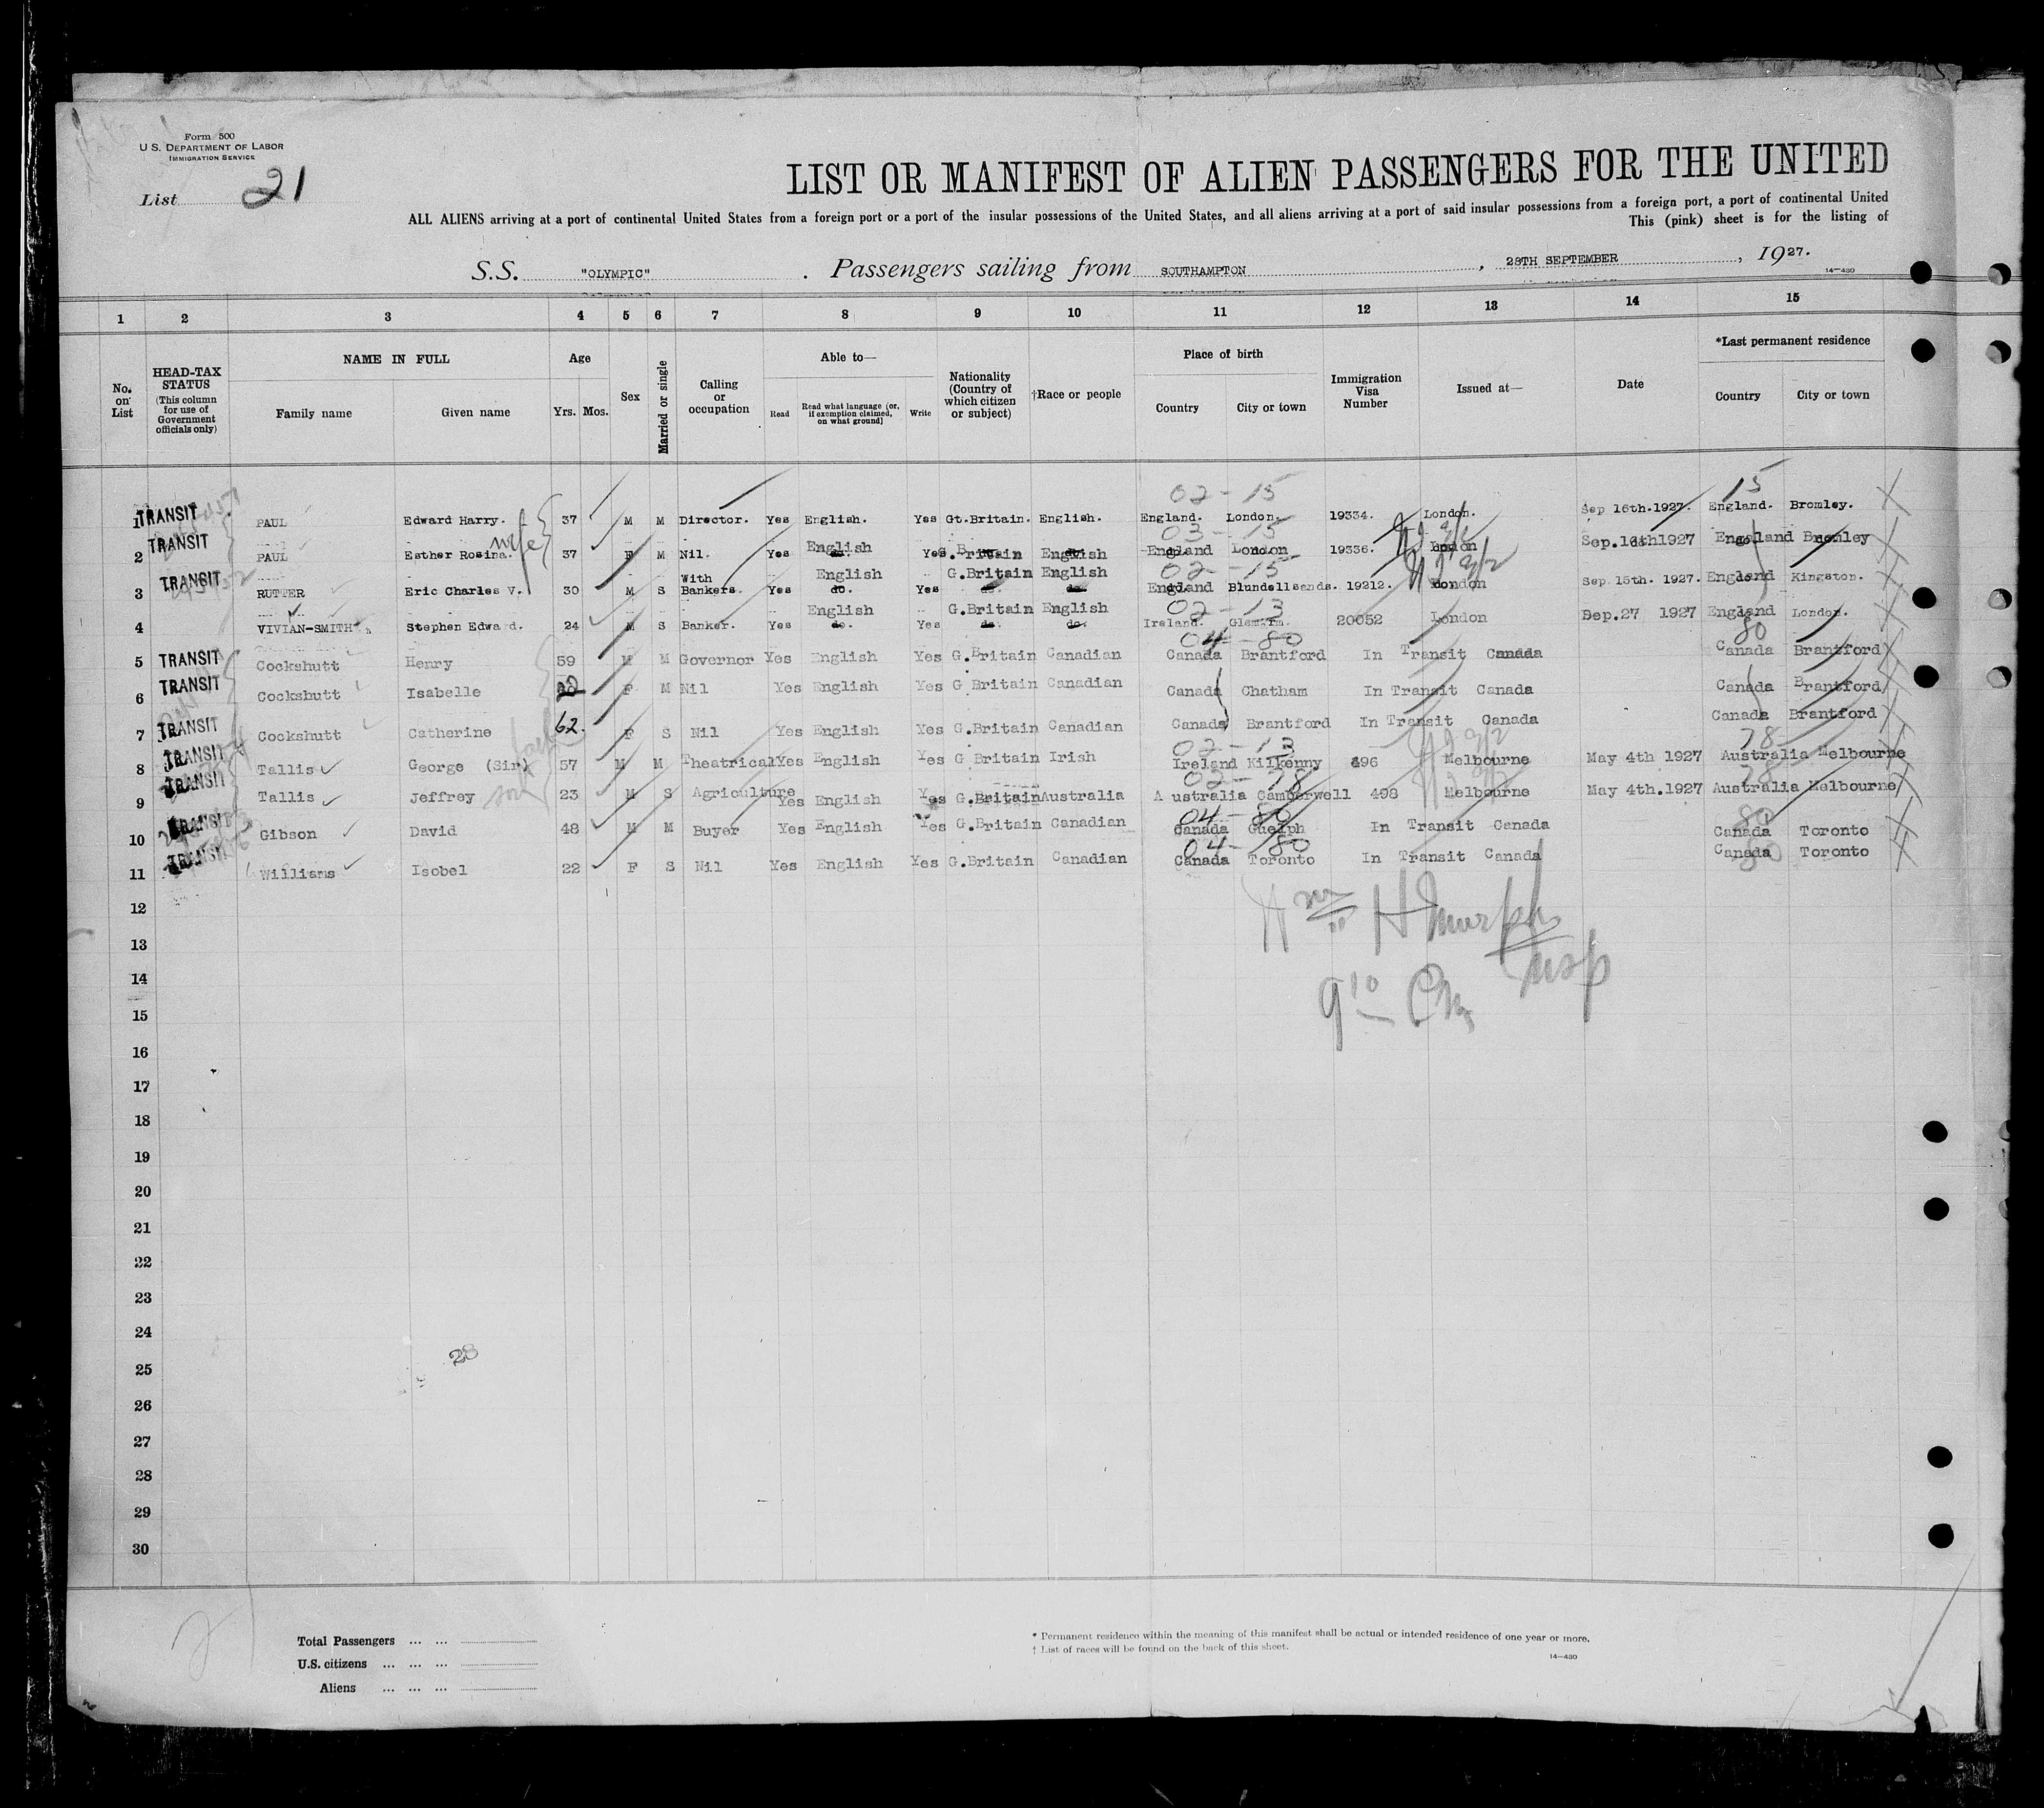 Form 500
U. S. DEPARTMENT OF LABOR
IMMIGRATION SERVICE
List 21
LIST OR MANIFEST OF ALIEN PASSENGERS FOR THE UNITED
ALL ALIENS arriving at a port of continental United States from a foreign port or a port of the insular possessions of the United States, and all aliens arriving at a port of said insular possessions from a foreign port, a port of continental United
This (pink) sheet is for the listing of
S.S. "OLYMPIC" . Passengers sailing from SOUTHAMPTON , 28TH SEPTEMBER , 1927.
14—430
1 2 3 4 5 6 7 8 9 10 11 12 13 14 15
No. on List
HEAD-TAX STATUS (This column for use of Government officials only)
NAME IN FULL
Family name Given name
Age
Yrs. Mos.
Sex
Married or single
Calling or occupation
Able to—
Read Read what language (or, if exemption claimed, on what ground) Write
Nationality (Country of which citizen or subject)
†Race or people
Place of birth
Country City or town
Immigration Visa Number
Issued at—
Date
*Last permanent residence
Country City or town
02 - 15 15
1 TRANSIT PAUL Edward Harry. 37 M M Director. Yes English. Yes Gt.Britain. English. England. London. 19334. London. Sep 16th.1927. England. Bromley.
03 - 15
2 TRANSIT PAUL Esther Rosina. wife 37 F M Nil. Yes English Yes G.Britain English England London 19336. London Sep.16th1927 England Bromley
02 - 15
3 TRANSIT RUTTER Eric Charles V. 30 M S With Bankers. Yes English do. Yes G.Britain English England Blundellsands. 19212. London Sep 15th. 1927. England Kingston.
02 - 13
4 VIVIAN-SMITH Stephen Edward. 24 M S Banker. Yes English do. Yes G.Britain English do. Ireland. Glenarm. 20052 London Sep.27 1927 England London.
04 - 80 80
5 TRANSIT Cockshutt Henry 59 M M Governor Yes English Yes G.Britain Canadian Canada Brantford In Transit Canada Canada Brantford
6 TRANSIT Cockshutt Isabelle F M Nil Yes English Yes G Britain Canadian Canada Chatham In Transit Canada Canada Brantford
7 TRANSIT Cockshutt Catherine 62. F S Nil Yes English Yes G.Britain Canadian Canada Brantford In Transit Canada Canada Brantford
02 - 13 78
8 TRANSIT Tallis George (Sir) 57 M M Theatrical Yes English Yes G Britain Irish Ireland Kilkenny 496 Melbourne May 4th 1927 Australia Melbourne
02 - 78 78
9 TRANSIT Tallis Jeffrey son 23 M S Agriculture Yes English Yes G.Britain Australia Australia Camberwell 498 Melbourne May 4th.1927 Australia Melbourne
04 - 80 80
10 TRANSIT Gibson David 48 M M Buyer Yes English Yes G.Britain Canadian Canada Guelph In Transit Canada Canada Toronto
04 - 80 80
11 TRANSIT Williams Isobel 22 F S Nil Yes English Yes G.Britain Canadian Canada Toronto In Transit Canada Canada Toronto
12
13
14
15
16
17
18
19
20
21
22
23
24
25
26
27
28
29
30
28
Total Passengers ... ...
U.S. citizens ... ... ...
Aliens ... ... ...
* Permanent residence within the meaning of this manifest shall be actual or intended residence of one year or more.
† List of races will be found on the back of this sheet.
14—430